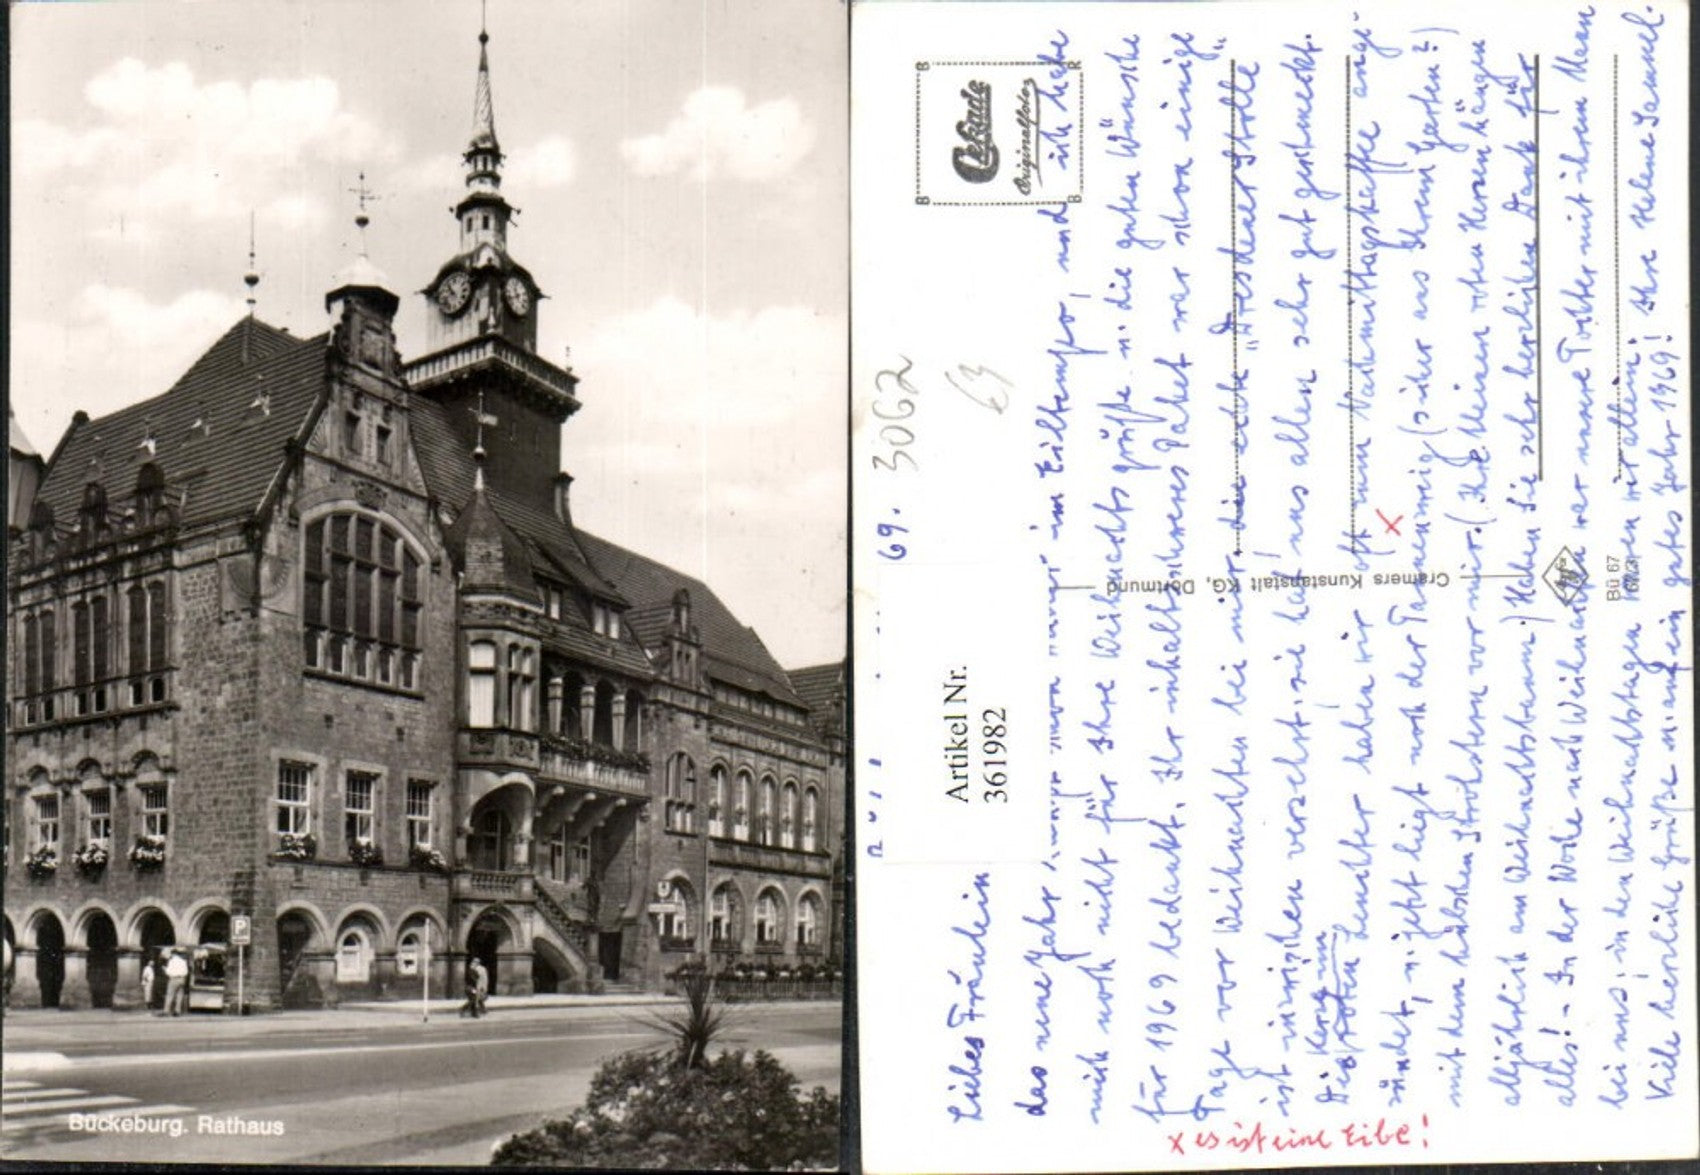 Bückeburg. Rathaus
P
Cekade
Originalfoto
B R
B B
30662
69.
Artikel Nr.
361982
Liebes Fräulein
das neue Jahr im Eiltempo, und ich habe
mich noch nicht für Ihre Weihnachtsgrüße u. die guten Wünsche
für 1969 bedankt. Ihr inhaltsschweres Paket war schon einige
Tage vor Weihnachten bei mir, die echte "Dresdener Stolle"
ist inzwischen verzehrt, sie hat uns allen sehr gut geschmeckt.
Die roten Kerzen im Leuchter haben wir oft zum Nachmittagskaffee ange-
zündet, u. jetzt liegt noch der Tannenzweig (sicher aus Ihrem Garten?)
x
mit dem hübschen Strohstern vor mir. (Die kleinen roten Herzen hängen
alljährlich am Weihnachtsbaum.) Haben Sie sehr herzlichen Dank für
alles! - In der Woche nach Weihnachten war unsere Tochter mit ihrem Mann
bei uns; in den Weihnachtstagen waren wir allein.
Viele herzliche Grüße u. auch ein gutes Jahr 1969! Ihre Helene
x es ist eine Eibe!
Cramers Kunstanstalt KG, Dortmund
Bü 67